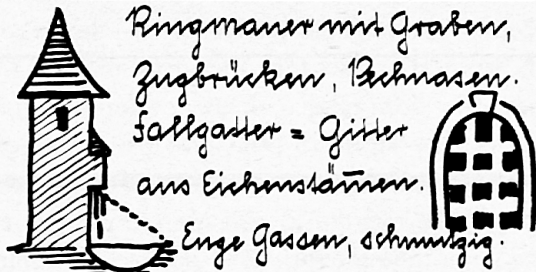 Ringmauer mit Graben,
Zugbrücken, Pechnasen.
Fallgatter = Gitter
aus Eichenstäm̄en.
Enge Gassen, schmutzig.